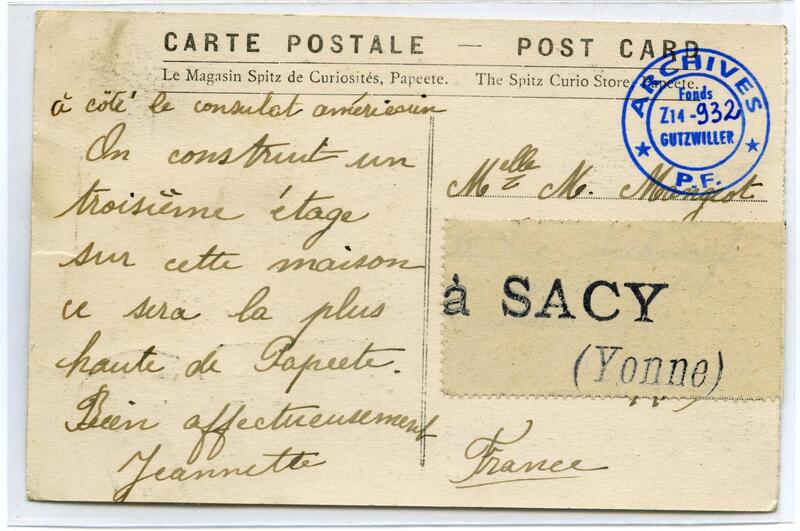 CARTE POSTALE — POST CARD
Le Magasin Spitz de Curiosités, Papeete. The Spitz Curio Store, Papeete.
à côté le consulat américain
On construit un
troisième étage
sur cette maison
ce sera la plus
haute de Papeete.
Bien affectueusement
Jeannette
ARCHIVES
Fonds
Z14-932
GUTZWILLER
P.F.
Melle M.
à SACY
(Yonne)
France